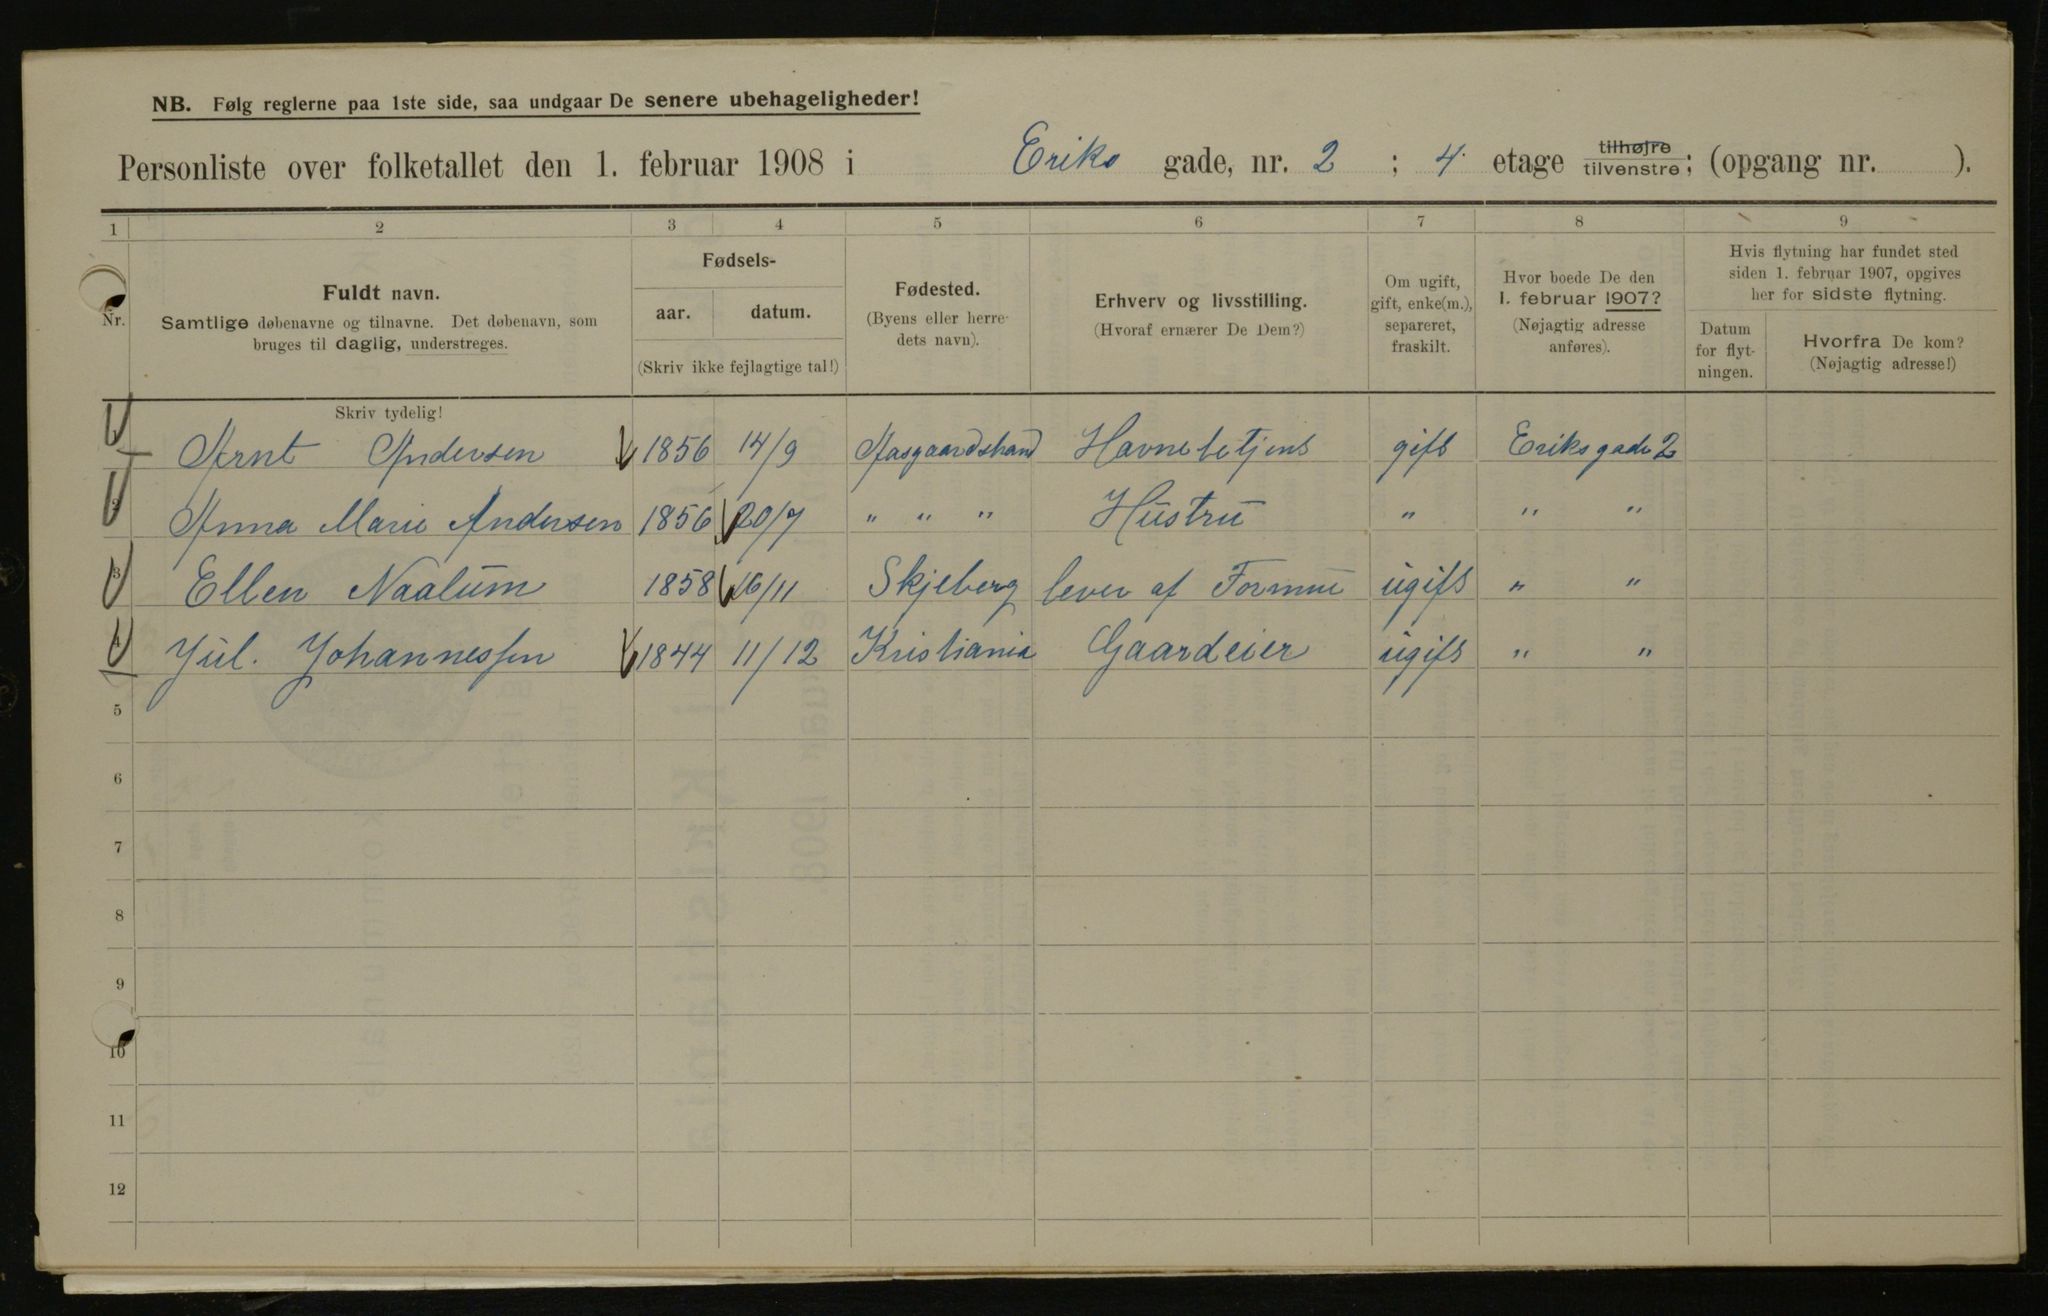 NB. Følg reglerne paa 1ste side, saa undgaar De senere ubehageligheder!
Personliste over folketallet den 1. februar 1908 i Eriks gade, nr. 2 ; 4. etage tilhøjre tilvenstre; (opgang nr. ).
1 2 3 4 5 6 7 8 9
Nr.
Fuldt navn.
Samtlige døbenavne og tilnavne. Det døbenavn, som
bruges til daglig, understreges.
Fødsels-
aar. datum.
(Skriv ikke fejlagtige tal!)
Fødested.
(Byens eller herre-
dets navn).
Erhverv og livsstilling.
(Hvoraf ernærer De Dem?)
Om ugift,
gift, enke(m.),
separeret,
fraskilt.
Hvor boede De den
1. februar 1907?
(Nøjagtig adresse
anføres).
Hvis flytning har fundet sted
siden 1. februar 1907, opgives
her for sidste flytning.
Datum
for flyt-
ningen.
Hvorfra De kom?
(Nøjagtig adresse!)
Skriv tydelig!
1 Arnt Andersen 1856 14/9 Aasgaardstrand Havnebetjent gift Eriksgade 2
2 Anna Marie Andersen 1856 20/7 " " " Hustru " " "
3 Ellen Naalum 1858 16/11 Skjeberg lever af Formue ugift " "
4 Jul. Johannessen 1844 11/12 Kristiania Gaardeier ugift " "
5
6
7
8
9
10
11
12